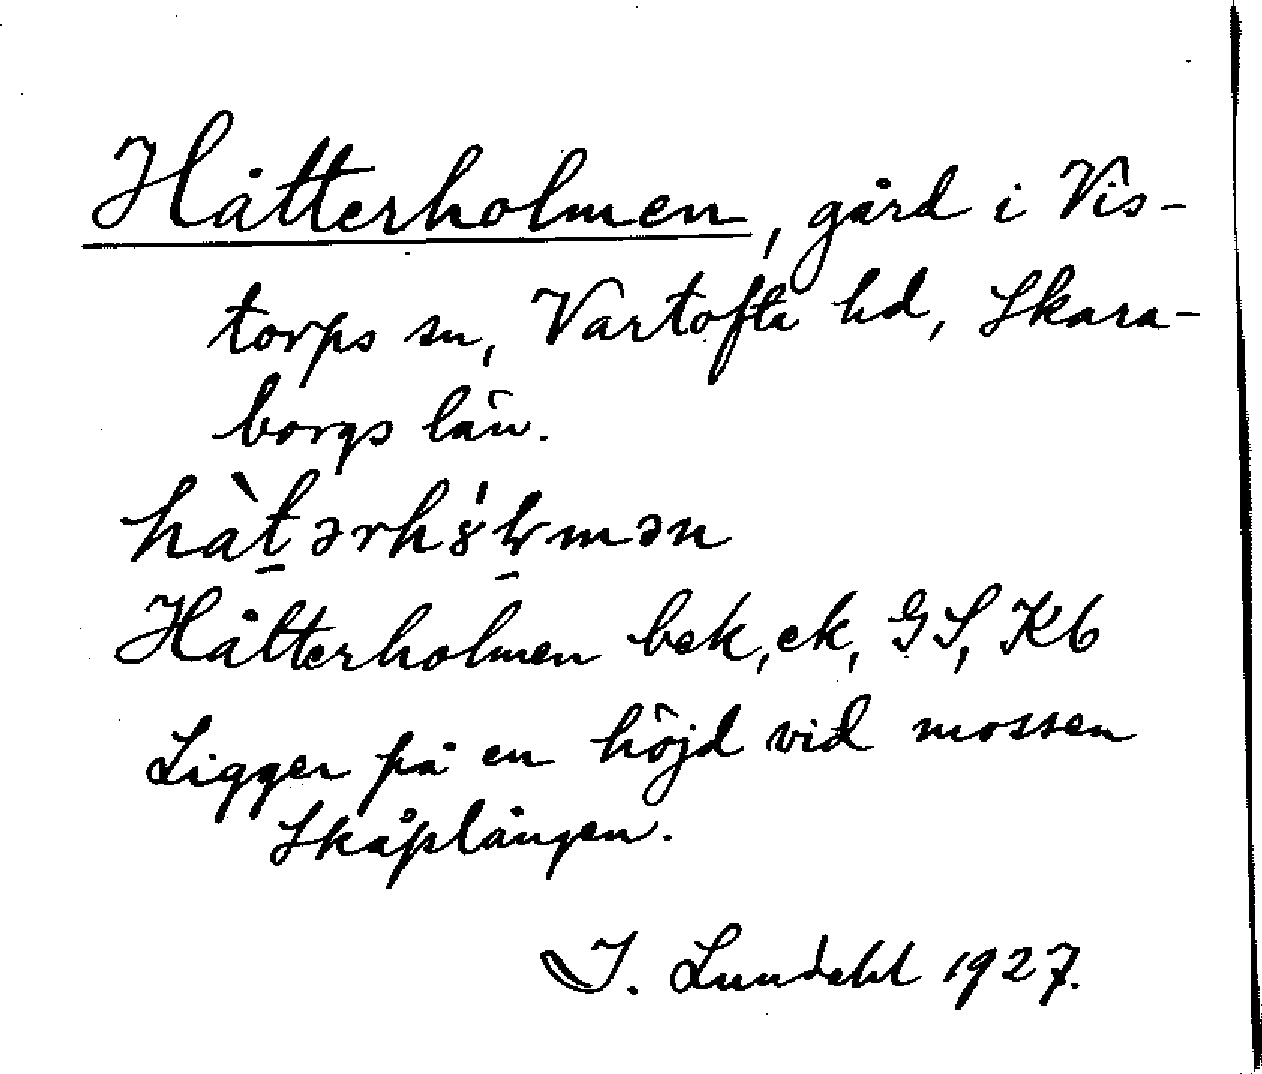 Håtterholmen, gård i Vis-
torps sn, Vartofta hd, Skara-
borgs län.
Håtterholmen bek, ek, GS, Kb
Ligger på en höjd vid mossen
Skåplången.
I. Lundahl 1927.